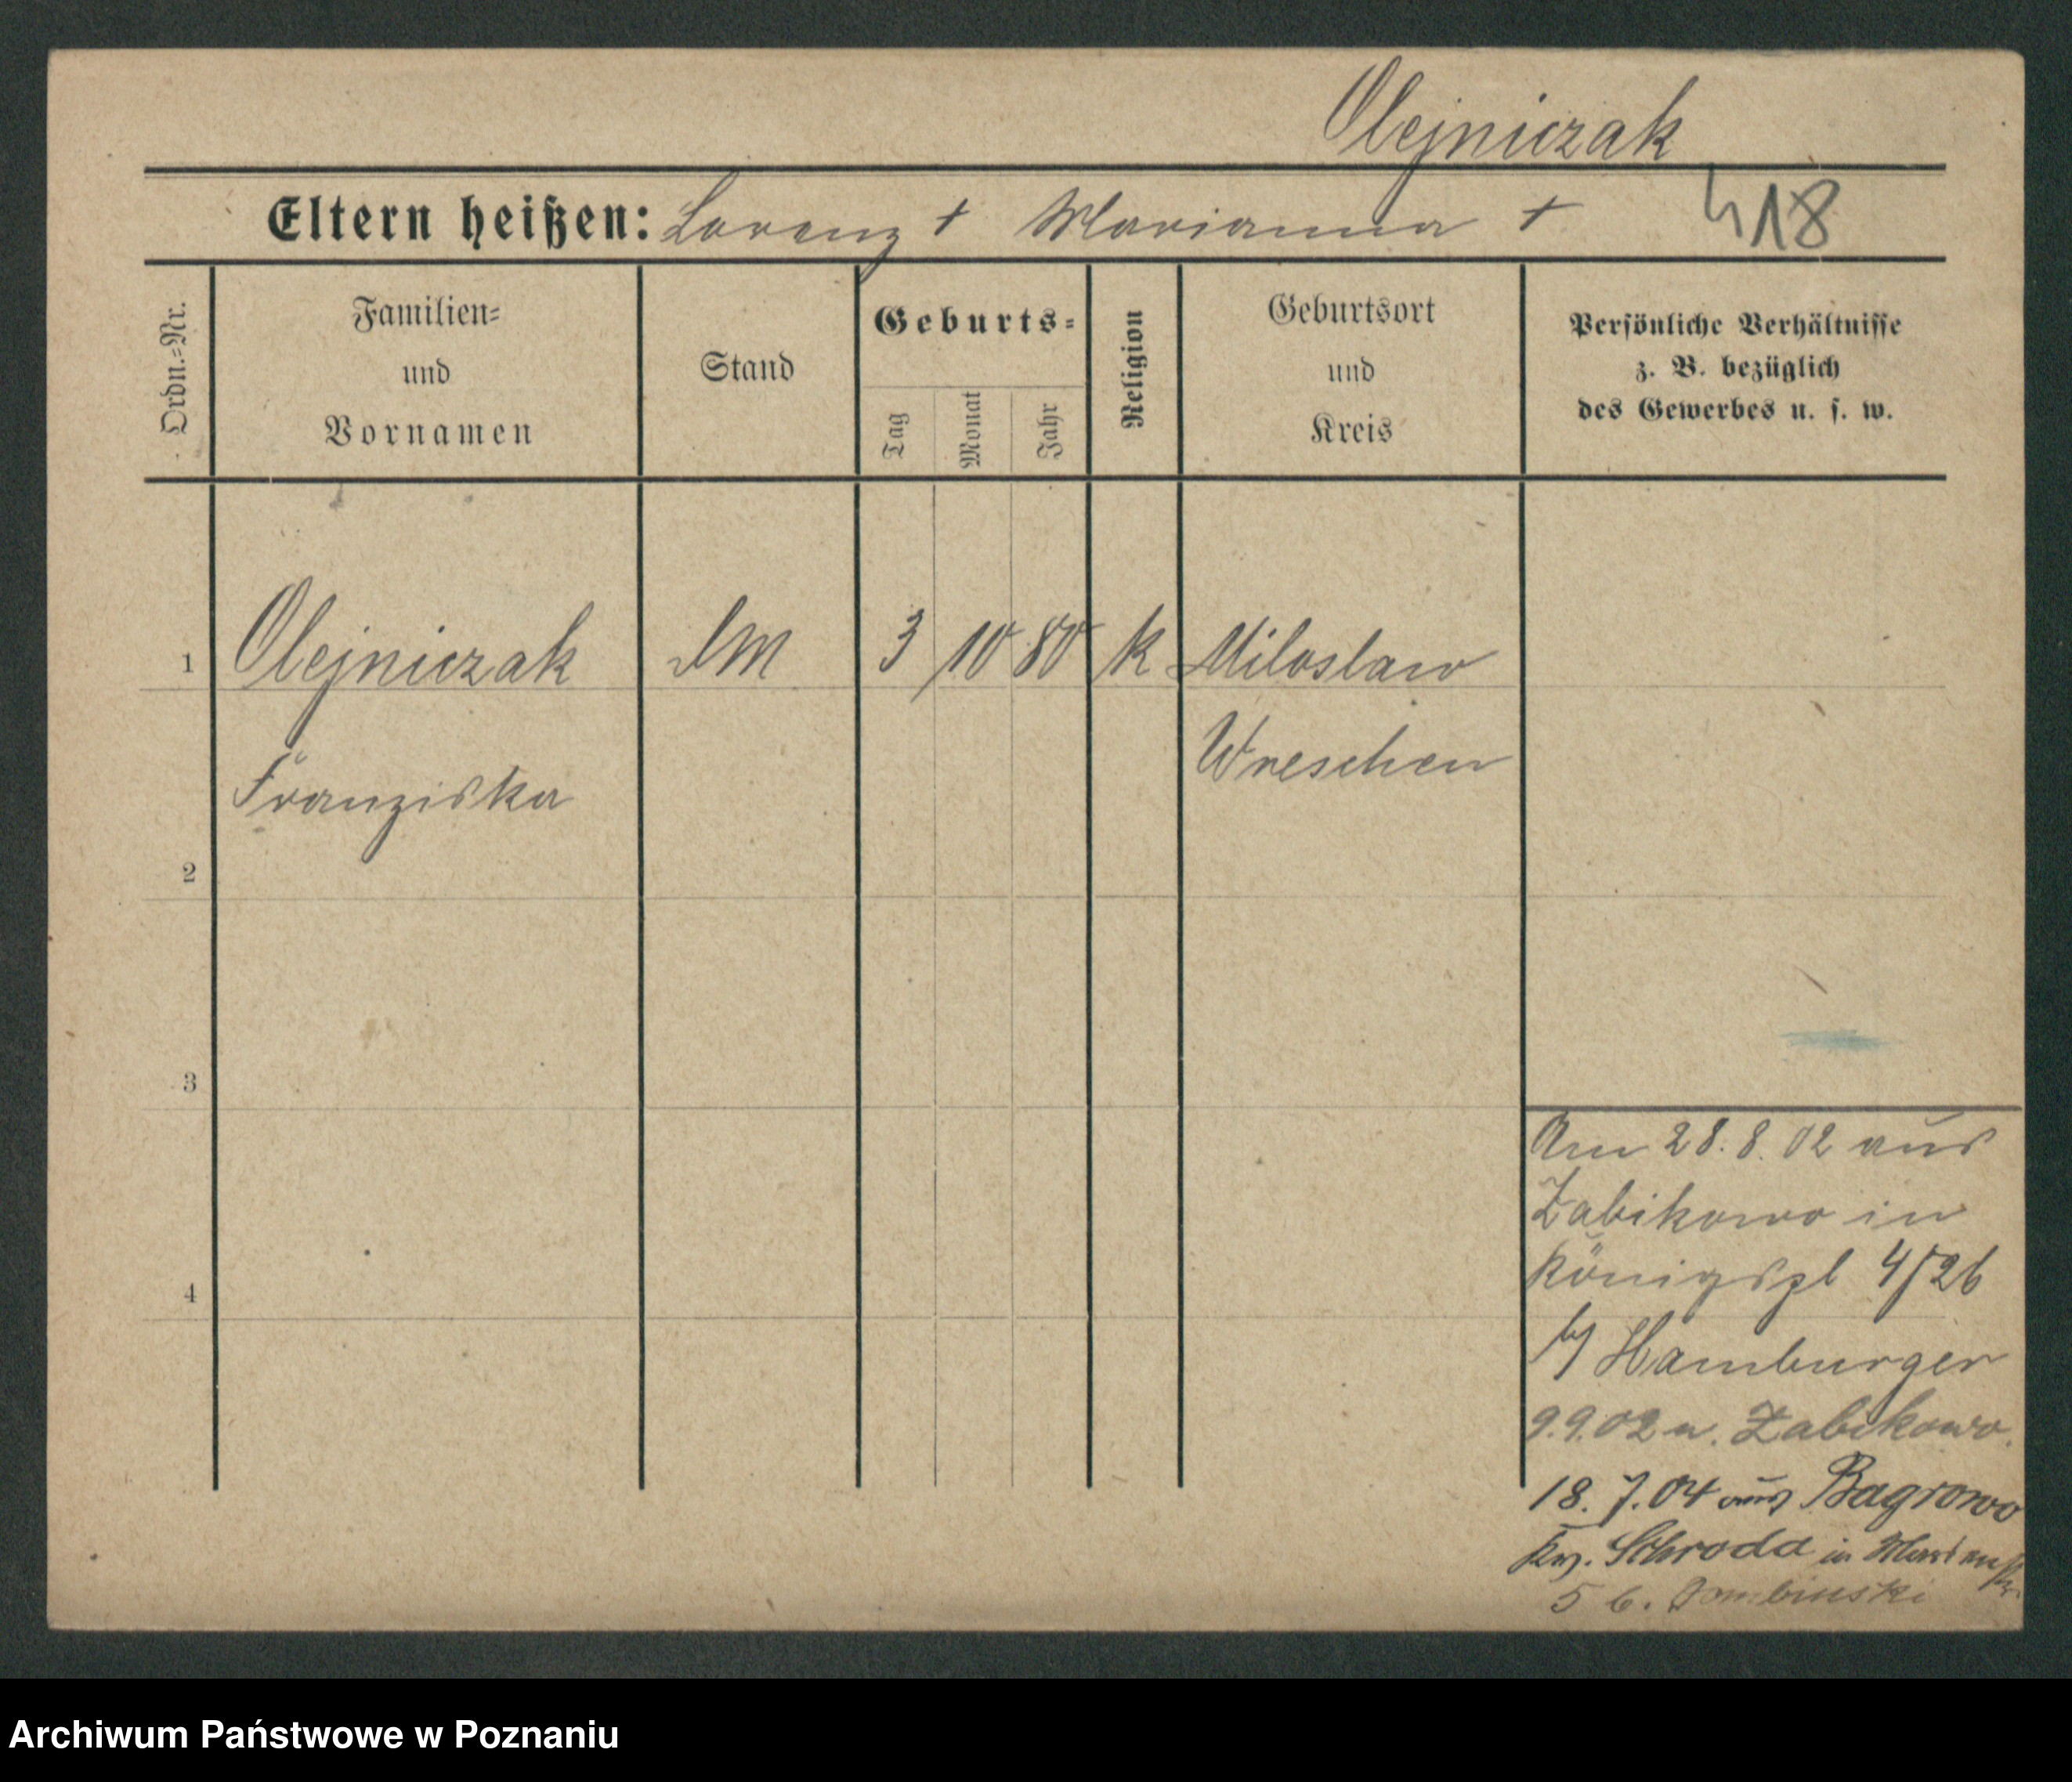 Olejniczak
Eltern heißen: Lorenz † Marianna † 418
Ordn.=Nr.
Familien=
und
Vornamen
Stand
Geburts=
Tag
Monat
Jahr
Religion
Geburtsort
und
Kreis
Persönliche Verhältnisse
z. B. bezüglich
des Gewerbes u. s. w.
1 Olejniczak DM 3 10 80 k Miloslaw
Wreschen
Franziska
2
3
4
Am 28.8.02 aus
Zabikowo in
Königspl 4/26
b/ Hamburger
9.9.02 n. Zabikowo.
18.7.04 aus Bagrowo
Krs. Schroda in
5 b.
Archiwum Państwowe w Poznaniu